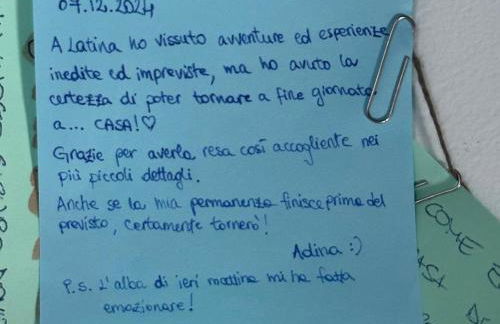 07.12.2024
A Latina ho vissuto avventure ed esperienze
inedite ed impreviste, ma ho avuto la
certezza di poter tornare a fine giornata
a... CASA!♡
Grazie per averla resa così accogliente nei
più piccoli dettagli.
Anche se la mia permanenza finisce prima del
previsto, certamente tornerò!
Adina :)
P.S. L'alba di ieri mattina mi ha fatta
emozionare!
COME